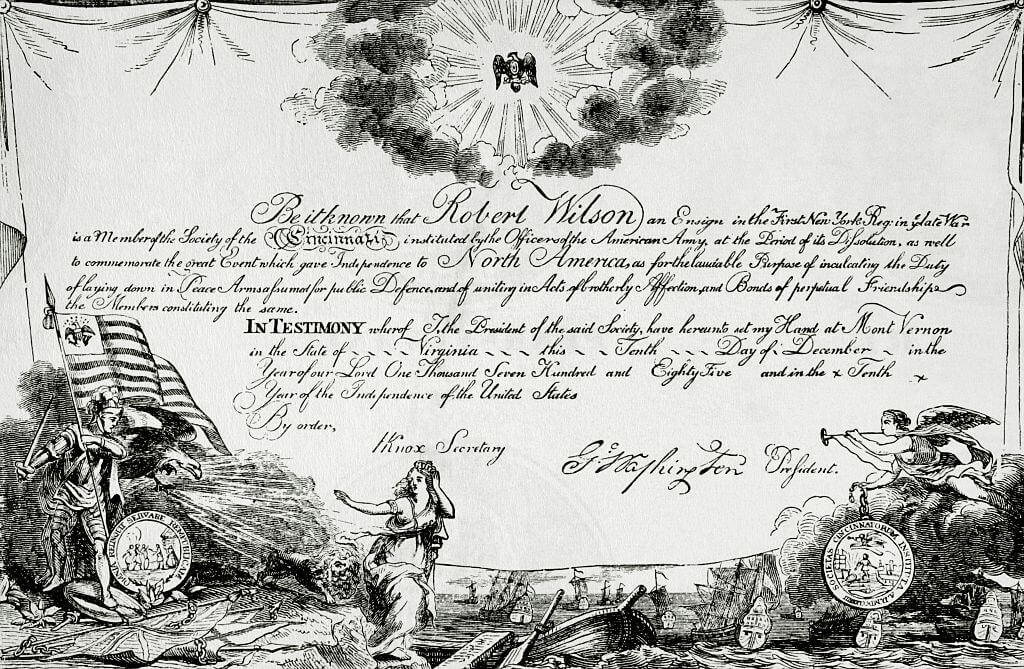 Be it known that Robert Wilson an Ensign in the First New York Reg: in ye late War
is a Member of the Society of the Cincinnati; instituted by the Officers of the American Army, at the Period of its Dissolution, as well
to commemorate the great Event which gave Independence to North America, as for the laudable Purpose of inculcating the Duty
of laying down in Peace Arms assumed for public Defence, and of uniting in Acts of brotherly Affection, and Bonds of perpetual Friendship
the Members constituting the same.
IN TESTIMONY wherof I, the President of the said Society, have hereunto set my Hand at Mont Vernon
in the State of Virginia this Tenth Day of December in the
Year of our Lord One Thousand Seven Hundred and Eighty Five and in the Tenth
Year of the Independence of the United States
By order,
HKnox Secretary
Go Washington President.
OMNIA SERVARE REMPUBLICAM
SOCIETAS CINCINNATORUM INSTITUTA